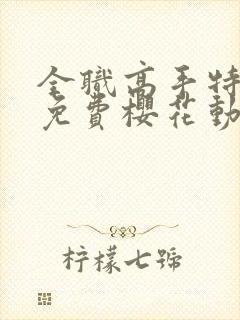 全職高手特
免費櫻花動
柠檬七號